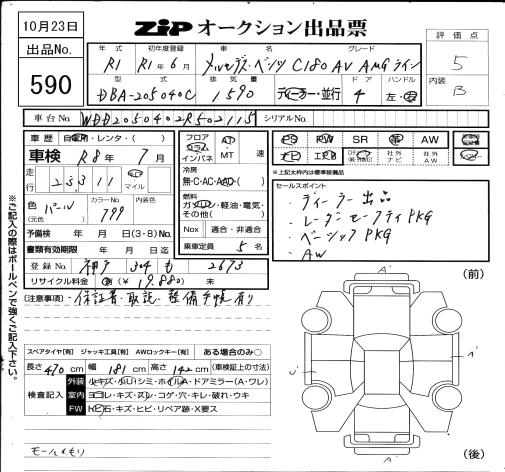 10月23日
ZIP オークション出品票
出品No.
590
年式 初年度登録 車名 グレード
R1 R1年6月 メルセデス・ベンツ C180 AV AMGライン
型式 排気量 ドア ハンドル
DBA-205040C 1590 ディーラー・並行 4 左・右
評価点
5
内装
B
車台No. WDD2050402R502115 シリアルNo.
車歴 自家用・レンタ・( )
車検 R8年7月
走行 23311 マイル
色 (元色) パール カラーNo. 799 内装色
予備検 年 月 日(3・8)No.
書類有効期限 年 月 日迄
登録No. 神戸 304 も 2673
リサイクル料金 (¥19,880)
フロア コラム インパネ AT MT 速
冷房
無・C・AC・AAC・( )
燃料
ガソリン・軽油・電気・その他( )
Nox 適合・非適合
乗車定員 5名
PS PW SR AW
ナビ エアB 社外ナビ 社外AW
※上記太枠内は標準装備品
セールスポイント
・ディーラー出品
・レーダーセーフティPKG
・ベーシックPKG
・AW
(注意事項)・保証書・取説・整備手帳有り
※ご記入の際はボールペンで強くご記入下さい。
スペアタイヤ[有] ジャッキ工具[有] AWロックキー[有] ある場合のみ○
長さ 470cm 幅 181cm 高さ 142cm (車検証上の寸法)
検査記入
外装 小キズ・小凹・シミ・ホイルA・ドアミラー(A・ワレ)
室内 ヨゴレ・キズ・スレ・コゲ・穴・キレ・破れ・ウキ
FW トビ石・キズ・ヒビ・リペア跡・X要ス
モールくもり
(前)
A'
A'
A'
(後)